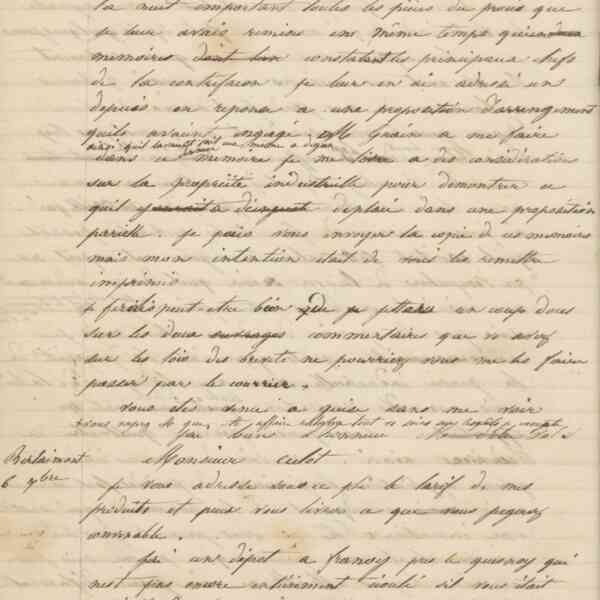 la nuit important toutes les pièces du procès que
je leur avais remises en même temps
mémoires constatant les principaux chefs
de la contrefaçon je leur en ai adressé un
depuis en réponse a une proposition d'arrangement
quils avaient engagé Mr Grain a me faire
ainsi quil
dans ce mémoire je me livre a des considération
sur la propriété industrielle pour démontrer ce
quil déplacé dans une proposition
pareille. je puis vous envoyer la copie de ces mémoires
mais mon intention était de vous les remettre
imprimés
je ferais peut etre bien de jetter un coup d'œil
sur les deux ouvrages commentaires que vs avez
sur les lois des brevets ne pourriez vous me les faire
passer par le courrier.
vous êtes venu a guise sans me voir
jai bien l'honneur
Berlaimont
6 7bre
Monsieur
je vous adresse sous ce pli le tarif de mes
produits et puis vous livrer ce que vous jugerez
convenable.
Jai un dépôt a près le quesnoy qui
nest pas encore entièrement écoulé sil vous était